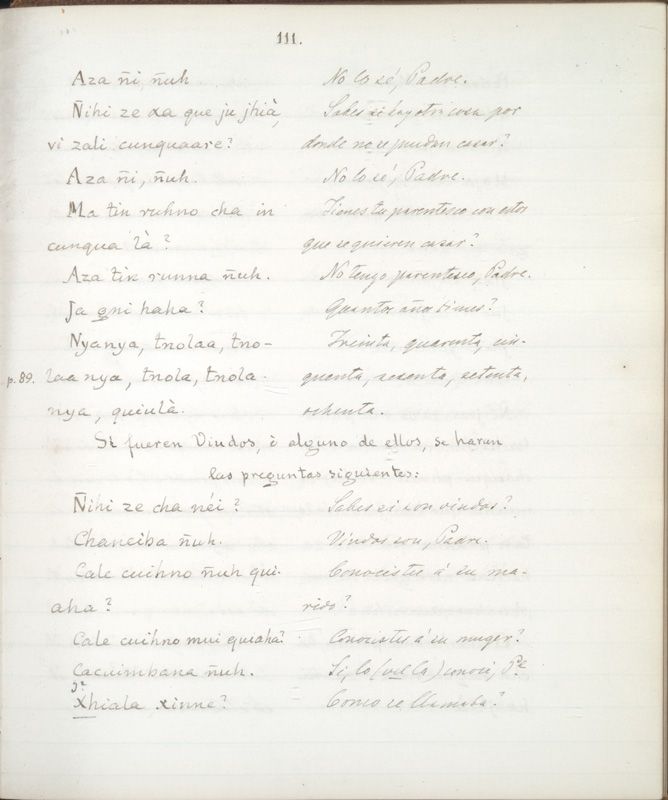 111.
Aza ñi, ñuh. No lo sé, Padre.
Ñihi ze xa que ju jhià, Sabes si hay otra cosa por
vi zali cunquaare? donde no se puedan casar?
Aza ñi, ñuh. No lo sé, Padre.
Ma tin ruhno cha in Tienes tu parentesco con estos
cunqua là? que se quieren casar?
Aza tin runna ñuh. No tengo parentesco, Padre.
Ja oni haha? Quantos años tienes?
Nyanya, tnolaa, tno- Treinta, quarenta, cin-
p. 89. laa nya, tnola, tnola quenta, sesenta, setenta,
nya, quiulà. ochenta.
Si fueren Viudos, ò alguno de ellos, se haran
las preguntas siguientes:
Ñihi ze cha néi? Sabes si son viudos?
Chaneiba ñuh. Viudos son, Padre.
Cale cuihno ñuh qui- Conocistes á su ma-
aha? rido?
Cale cuihno mui quiaha? Conocistes á su muger?
Cacuimbana ñuh. Si, lo (vel la) conoci, Pe.
Xhiala xinne? Como se llamaba?